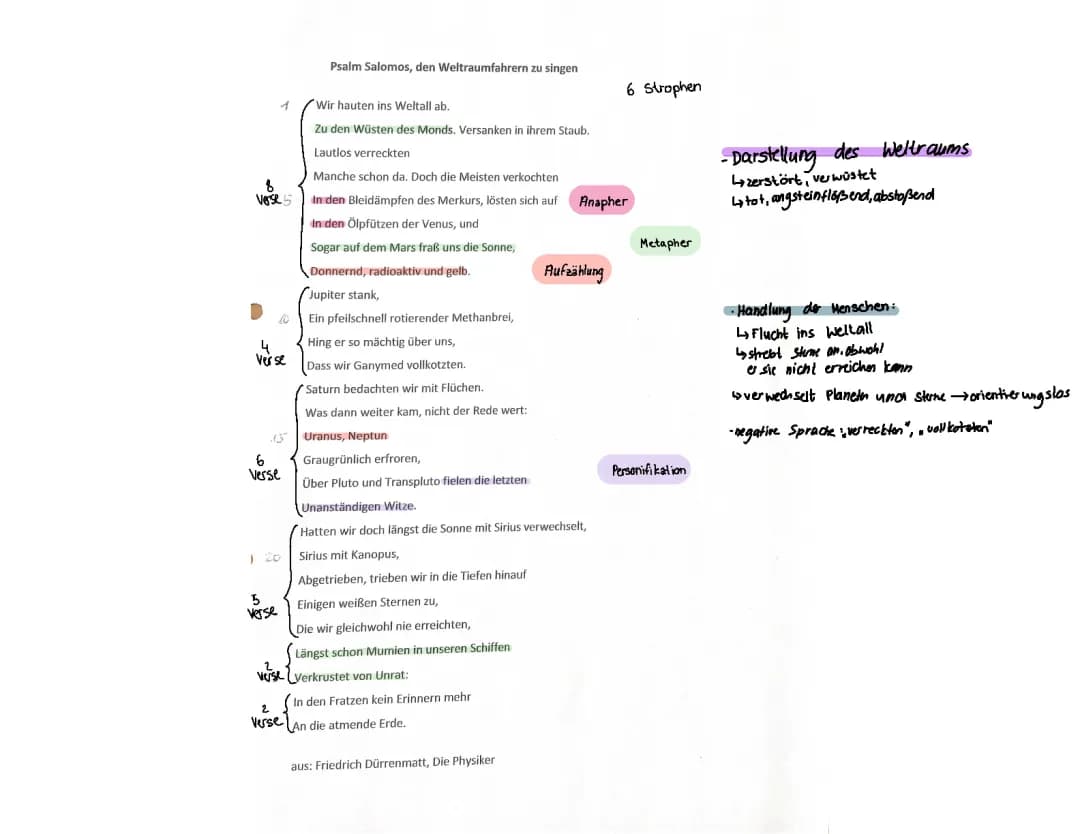 Psalm Salomos, den Weltraumfahrern zu singen
6 Strophen
1
Wir hauten ins Weltall ab.
Zu den Wüsten des Monds. Versanken in ihrem Staub.
Lautlos verreckten
Manche schon da. Doch die Meisten verkochten
8
Verse
5
In den Bleidämpfen des Merkurs, lösten sich auf
Anapher
In den Ölpfützen der Venus, und
Sogar auf dem Mars fraß uns die Sonne,
Metapher
Donnernd, radioaktiv und gelb.
Aufzählung
- Darstellung des Weltraums
↳ zerstört, verwüstet
↳ tot, angsteinflößend, abstoßend
Jupiter stank,
10
Ein pfeilschnell rotierender Methanbrei,
4
Verse
Hing er so mächtig über uns,
Dass wir Ganymed vollkotzten.
· Handlung der Menschen:
↳ Flucht ins Weltall
↳ strebt Sterne an, obwohl
er sie nicht erreichen kann
↳ verwechselt Planeten und Sterne → orientierungslos
- negative Sprache: „verreckten", „vollkotzten"
Saturn bedachten wir mit Flüchen.
Was dann weiter kam, nicht der Rede wert:
15
Uranus, Neptun
6
Verse
Graugrünlich erfroren,
Über Pluto und Transpluto fielen die letzten
Unanständigen Witze.
Personifikation
Hatten wir doch längst die Sonne mit Sirius verwechselt,
20
Sirius mit Kanopus,
Abgetrieben, trieben wir in die Tiefen hinauf
5
Verse
Einigen weißen Sternen zu,
Die wir gleichwohl nie erreichten,
Längst schon Mumien in unseren Schiffen
2
Verse
Verkrustet von Unrat:
2
Verse
In den Fratzen kein Erinnern mehr
An die atmende Erde.
aus: Friedrich Dürrenmatt, Die Physiker